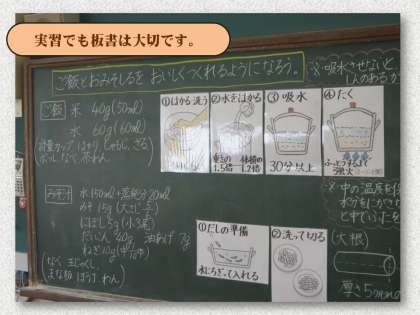 実習でも板書は大切です。
ご飯とおみそしるを おいしくつくれるようになろう。
ご飯 米 40g(50ml)
水 60g(60ml)
計量カップ はかり しゃもじ ざる
ボール なべ 茶わん
①はかる・洗う
②水をはかる
重さの 1.5倍
体積の 1.2倍
③吸水
30分以上
④たく
強火
※吸水させないと、
みそ汁 水150ml+蒸発分20ml
みそ 15g(大さじ
にぼし 5g
だいこん 40g 油あげ 7g
ねぎ 10g
なべ 玉じゃくし
まな板 ほうちょう わん
①だしの準備
水にちぎって入れる
②洗って切る
※中の温度を
(大根)
厚さ5